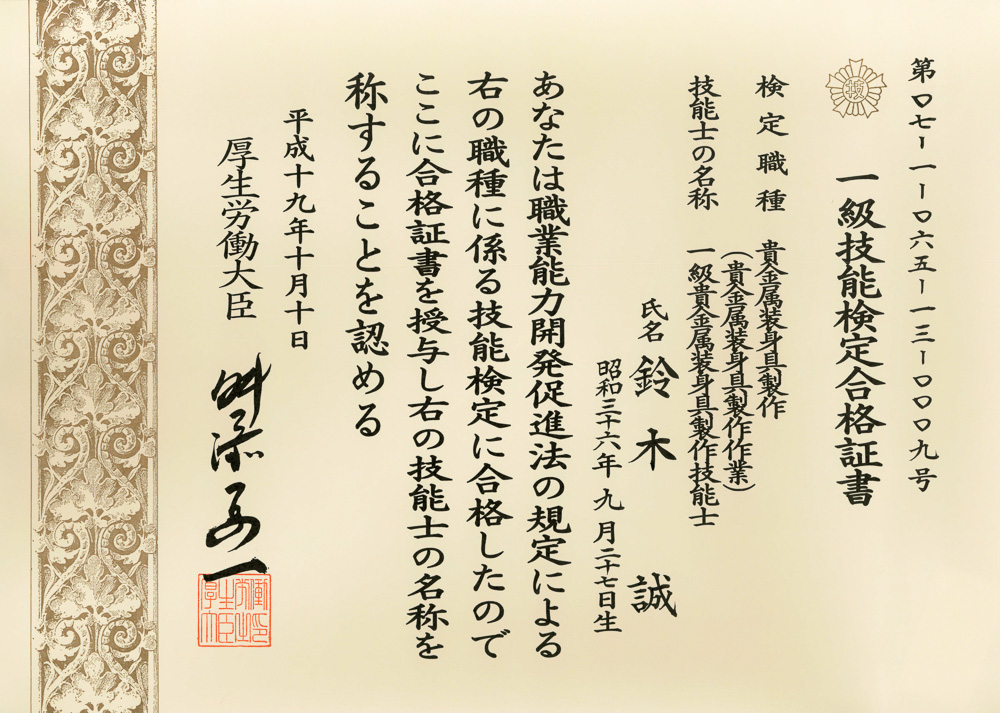 第〇七-一-〇六五-一三-〇〇〇九号
技
一級技能検定合格証書
検定職種 貴金属装身具製作
(貴金属装身具製作作業)
技能士の名称 一級貴金属装身具製作技能士
氏名 鈴木 誠
昭和三十六年 九月二十七日生
あなたは職業能力開発促進法の規定による
右の職種に係る技能検定に合格したので
ここに合格証書を授与し右の技能士の名称を
称することを認める
平成十九年十月十日
厚生労働大臣
舛添要一
厚生労働大臣之印